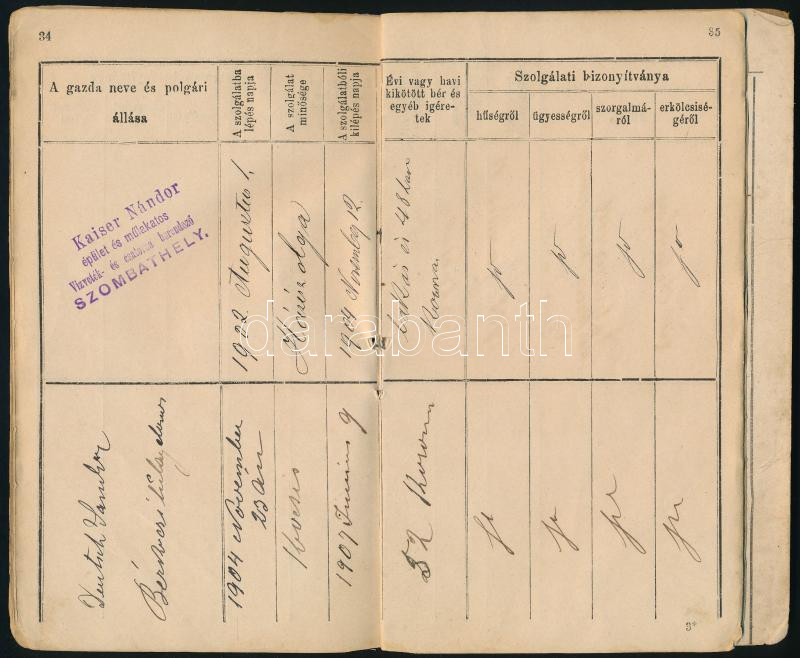 34
35
A gazda neve és polgári
állása
A szolgálatba
lépés napja
A szolgálat
minősége
A szolgálatbóli
kilépés napja
Évi vagy havi
kikötött bér és
egyéb igére-
tek
Szolgálati bizonyítványa
hűségről
ügyességről
szorgalmá-
ról
erkölcsisé-
géről
Kaiser Nándor
épület és műlakatos
Vízvezeték- és berendező
SZOMBATHELY.
1902 Augusztus 1.
1904 November 12
és 48 kor
Korona.
jó
jó
jó
jó
Deutsch Sándor
1904 November
23 án
Kocsis
1907 Junius 9
52 Korona
jó
jó
jó
jó
3*
darabanth